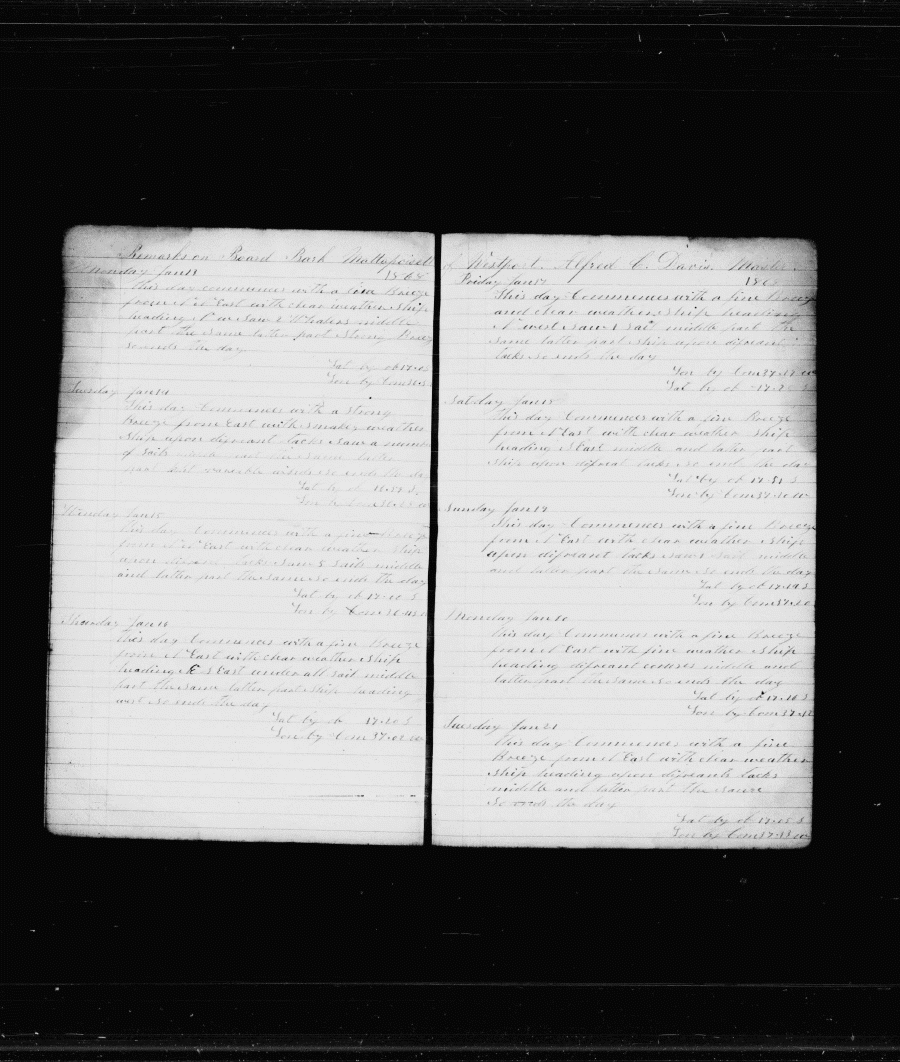 Remarks on Board Bark Mattapoisett
Monday Jan 13 1868
this day commences with a fine Breeze
from N East with clear weather Ship
heading N W Saw 2 Whalers middle
part the same latter part Strong Breeze
so ends the day
Lat by ob 17.
Lon by Crom 36
Tuesday Jan 14
this day Commences with a Strong
Breeze from East with smoky weather
Ship upon difrant tacks Saw a number
of Sails latter
part wind so ends the da
Lat by ob 16.57 S
Lon by Crom 36
Wenday Jan 15
this day Commences with a fine Breeze
from N East with clear weather Ship
upon tacks Saw 5 Sails middle
and latter part the Same so ends the day
Lat by ob 17.10 S
Lon by Crom 36.45
Thursday Jan 16
this day Commences with a fine Breeze
from N East with clear weather Ship
heading E S East under all Sail middle
part the Same latter part Ship heading
west so ends the day
Lat by ob 17.20 S
Lon by Crom 37.02.00
of Westport. Alfred C. Davis. Master.
Friday Jan 17 1868
this day Commences with a fine Breeze
and clear weather Ship heading
N west Saw 1 Sail middle part the
same latter part Ship upon difrant
tacks so ends the day
Lon by Crom 37.
Lat by ob 17.
Satday Jan 18
this day Commences with a fine Breeze
from N East with clear weather Ship
heading S East middle and latter part
Ship upon difrant tacks so end the day
Lat by ob 17.21 S
Lon by Crom 37.10.00
Sunday Jan 19
this day Commences with a fine Breeze
from N East with clear weather Ship
upon difrant tacks Saw 1 Sail middle
and latter part the Same so ends the day
Lat by ob 17.19 S
Lon by Crom 37.
Monday Jan 20
this day Commences with a fine Breeze
from N East with fine weather Ship
heading difrant courses middle and
latter part the same so ends the day
Lat by ob 17.16 S
Lon by Crom 37.12
Tuesday Jan 21
this day Commences with a fine
Breeze from N East with clear weather
Ship heading upon difrant tacks
middle and latter part the Same
So ends the day
Lat by ob 17.15 S
Lon by Crom 37.33.00